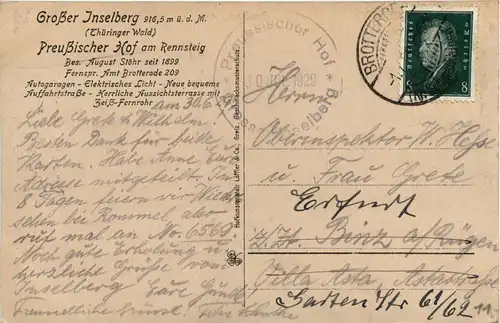 Großer Inselberg 916,5 m ü. d. M.
(Thüringer Wald)
Preußischer Hof am Rennsteig
Bes. August Stöhr seit 1899
Fernspr. Amt Brotterode 209
Autogaragen - Elektrisches Licht - Neue bequeme
Auffahrtstraße - Herrliche Aussichtsterrasse mit
Zeiß-Fernrohr
am 30.6.
Liebe Grete & Wilhelm.
Besten Dank für beide
Karten. Habe Anne Eure
Adresse mitgeteilt. In
8 Tagen feiern wir Wieder
sehen bei Rommel, aber
ruf mal an No. 6569
Noch gute Erholung u.
herzliche Grüße vom
Inselberg Eure
Freundliche Grüße
Preussischer Hof
1929
Inselberg
BROTTERODE
Deutsches Reich
8
Herrn
Oberinspektor W. Hesse
u. Frau Grete
Erfurt
z. Zt. Binz a/Rügen
Villa Asta, Astastraße
Garten Str 61/62